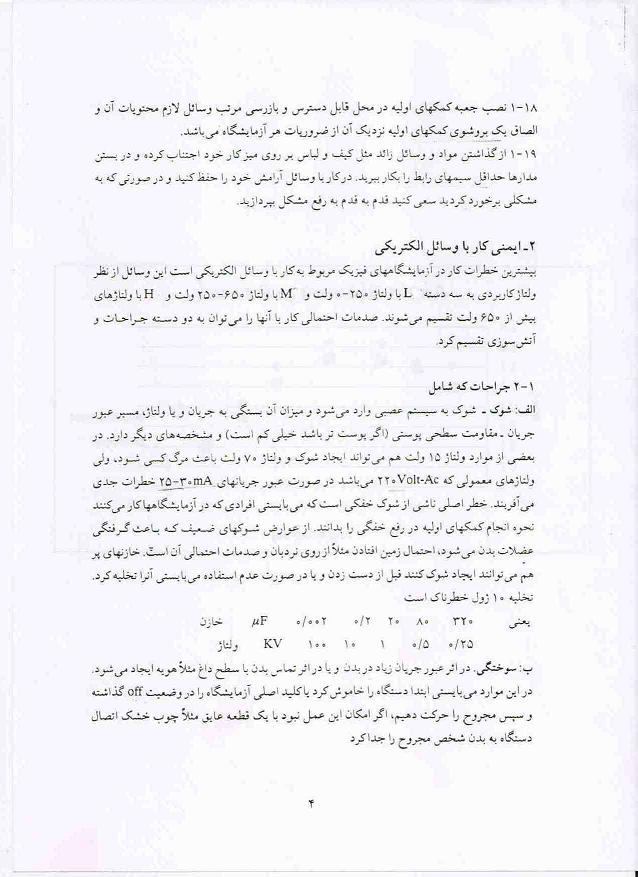 ۱-۱۸ نصب جعبه کمکهای اولیه در محل قابل دسترس و بازرسی مرتب وسائل لازم محتویات آن و
الصاق یک بروشوی کمکهای اولیه نزدیک آن از ضروریات هر آزمایشگاه می‌باشد.
۱-۱۹ از گذاشتن مواد و وسائل زائد مثل کیف و لباس بر روی میز کار خود اجتناب کرده و در بستن
مدارها حداقل سیمهای رابط را بکار ببرید. در کار با وسائل آرامش خود را حفظ کنید و در صورتی که به
مشکلی برخورد کردید سعی کنید قدم به قدم به رفع مشکل بپردازید.
۲ـ ایمنی کار با وسائل الکتریکی
بیشترین خطرات کار در آزمایشگاههای فیزیک مربوط به کار با وسائل الکتریکی است این وسائل از نظر
ولتاژ کاربردی به سه دسته L با ولتاژ ۲۵۰-۰ ولت و M با ولتاژ ۶۵۰-۲۵۰ ولت و H با ولتاژهای
بیش از ۶۵۰ ولت تقسیم می‌شوند. صدمات احتمالی کار با آنها را می‌توان به دو دسته جراحات و
آتش‌سوزی تقسیم کرد.
۲-۱ جراحات که شامل
الف: شوک ـ شوک به سیستم عصبی وارد می‌شود و میزان آن بستگی به جریان و یا ولتاژ، مسیر عبور
جریان ـ مقاومت سطحی پوستی (اگر پوست تر باشد خیلی کم است) و مشخصه‌های دیگر دارد. در
بعضی از موارد ولتاژ ۱۵ ولت هم می‌تواند ایجاد شوک و ولتاژ ۷۰ ولت باعث مرگ کسی شود، ولی
ولتاژهای معمولی که ۲۲۰Volt-Ac می‌باشد در صورت عبور جریانهای ۲۵-۳۰mA خطرات جدی
می‌آفریند. خطر اصلی ناشی از شوک خفگی است که می‌بایستی افرادی که در آزمایشگاهها کار می‌کنند
نحوه انجام کمکهای اولیه در رفع خفگی را بدانند. از عوارض شوکهای ضعیف که باعث گرفتگی
عضلات بدن می‌شود، احتمال زمین افتادن مثلاً از روی نردبان و صدمات احتمالی آن است. خازنهای پر
هم می‌توانند ایجاد شوک کنند قبل از دست زدن و یا در صورت عدم استفاده می‌بایستی آنرا تخلیه کرد.
تخلیه ۱۰ ژول خطرناک است
یعنی ۳۲۰ ۸۰ ۲۰ ۰/۲ ۰/۰۰۲ µF خازن
۰/۲۵ ۰/۵ ۱ ۱۰ ۱۰۰ KV ولتاژ
ب: سوختگی. در اثر عبور جریان زیاد در بدن و یا در اثر تماس بدن با سطح داغ مثلاً هویه ایجاد می‌شود.
در این موارد می‌بایستی ابتدا دستگاه را خاموش کرد یا کلید اصلی آزمایشگاه را در وضعیت off گذاشته
و سپس مجروح را حرکت دهیم، اگر امکان این عمل نبود با یک قطعه عایق مثلاً چوب خشک اتصال
دستگاه به بدن شخص مجروح را جدا کرد
۴